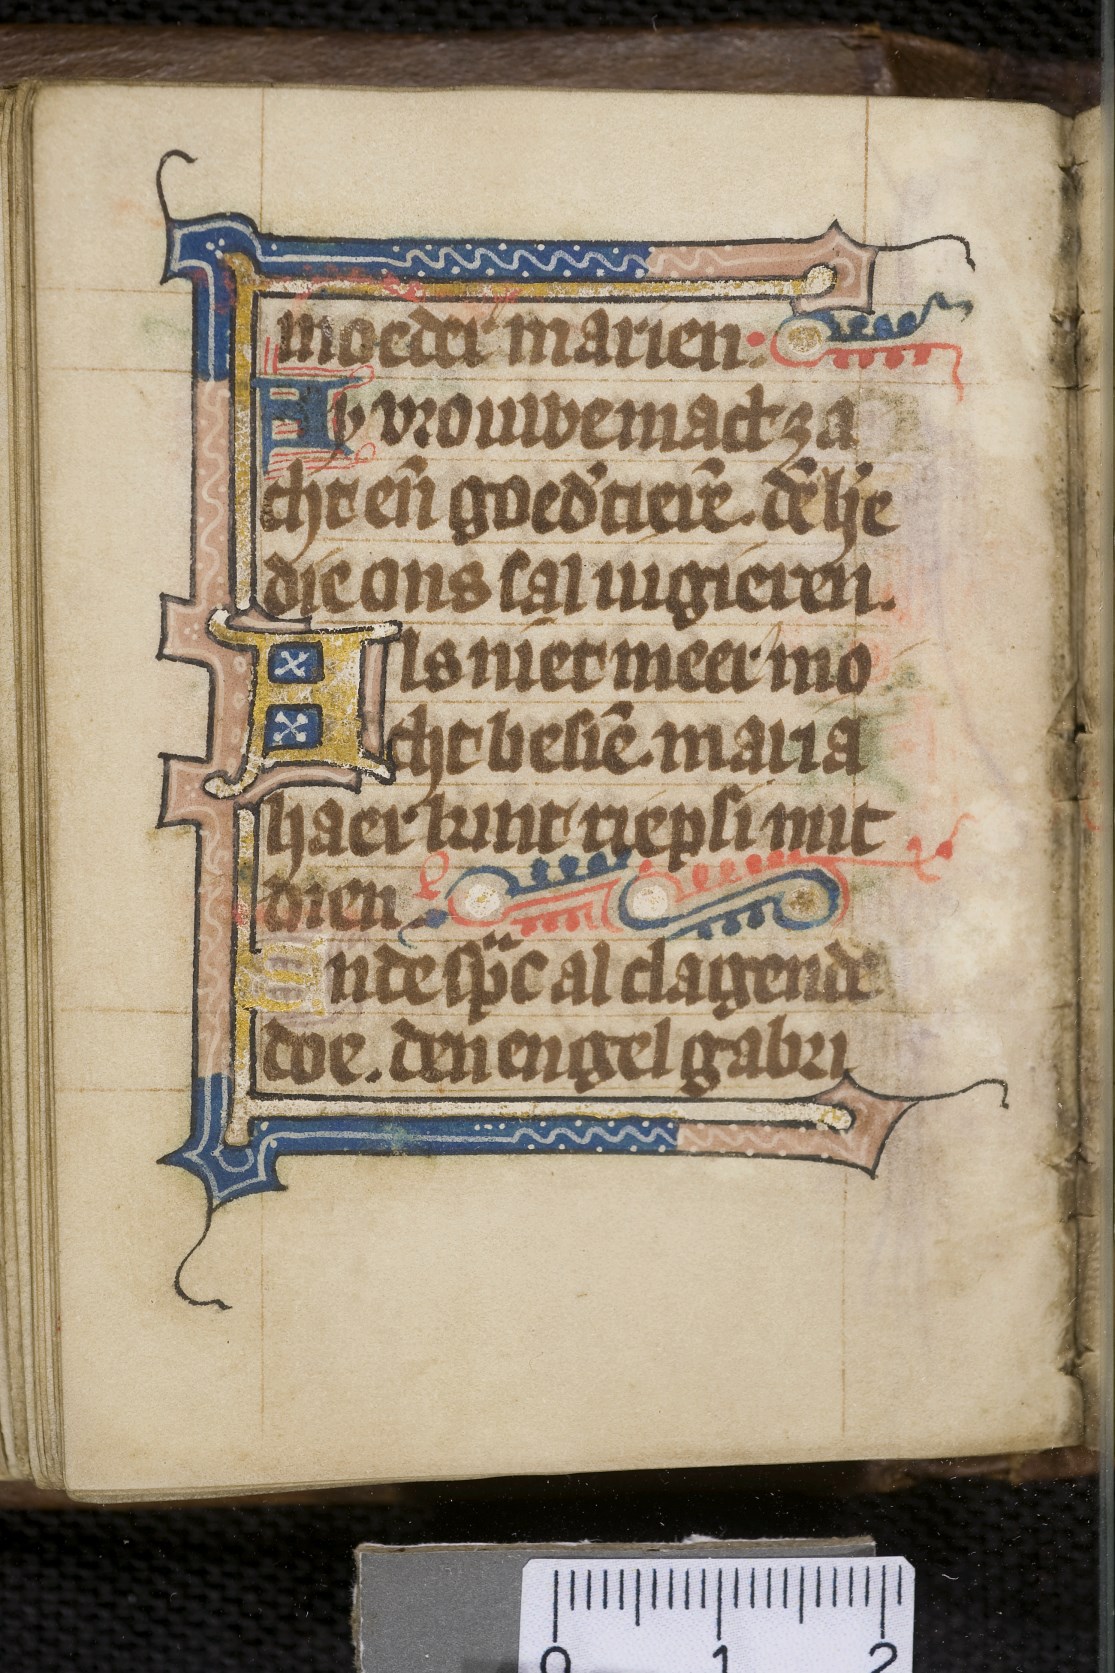 moeder marien.
Ey vrouwe mact za
cht eñ goed'tierē. dē h'e
die ons sal iugieren.
Als niet meer mo
cht besiē. maria
haer kint riep si mit
dien.
Ende sp̄c al clagende
doe. den engel gabri
0 1 2